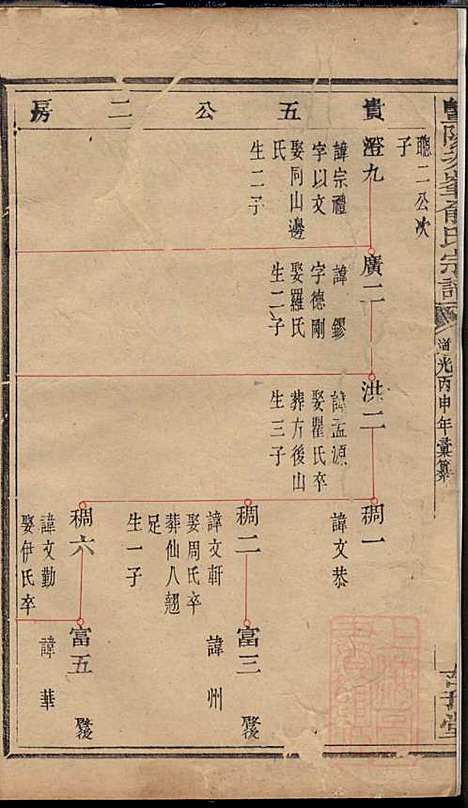 貴五公二房
聽二公次子
澄九
諱宗禮
字以文
娶同山邊氏
生二子
廣二
諱鏐
字德剛
娶羅氏
生二子
洪二
諱孟源
娶瞿氏卒
葬方後山
生三子
稠一
諱文恭
稠二
諱文軒
娶周氏卒
葬仙人翹足
生一子
富三
諱州
歿
稠六
諱文勤
娶伊氏卒
富五
諱華
歿
俞氏宗譜
道光丙申年彙纂